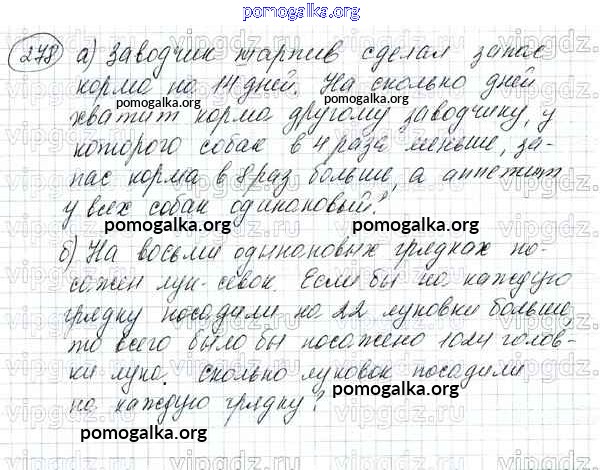 pomogalka.org
278 а) Заводчик таксив сделал запас
корма на 14 дней. На сколько дней
хватит корма другому заводчику, у
которого собак в 4 раза меньше, за-
пас корма в 8 раз больше, а аппетит
у всех собак одинаковый?
б) На восьми одинаковых грядках по-
сажен лук-севок. Если бы на каждую
грядку посадили на 22 луковки больше,
то всего было бы посажено 1024 голов-
ки лука. Сколько луковок посадили
на каждую грядку?
pomogalka.org